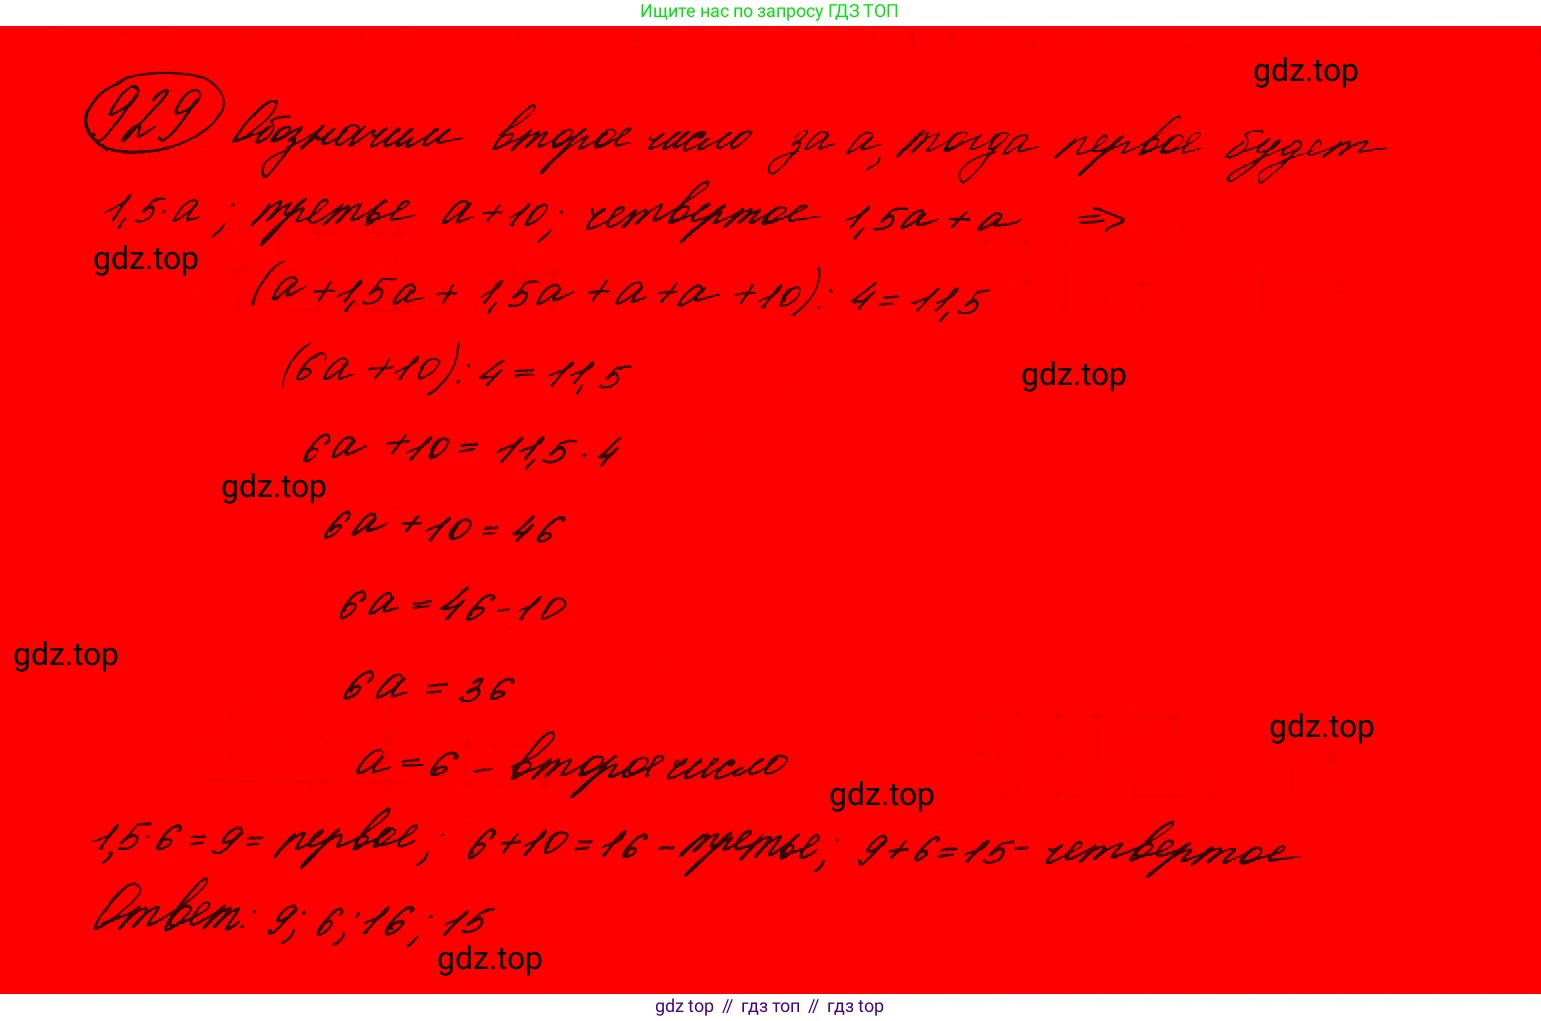 Ищите нас по запросу ГДЗ ТОП
gdz.top
929 Обозначим второе число за а, тогда первое будет
1,5·а; третье а+10; четвертое 1,5а+а =>
gdz.top
(а+1,5а+1,5а+а+а+10):4=11,5
(6а+10):4=11,5
gdz.top
6а+10=11,5·4
gdz.top
6а+10=46
6а=46-10
gdz.top
6а=36
gdz.top
а=6 - второе число
gdz.top
1,5·6=9= первое; 6+10=16 - третье; 9+6=15- четвертое
Ответ: 9; 6; 16; 15
gdz.top
gdz top // гдз топ // гдз top